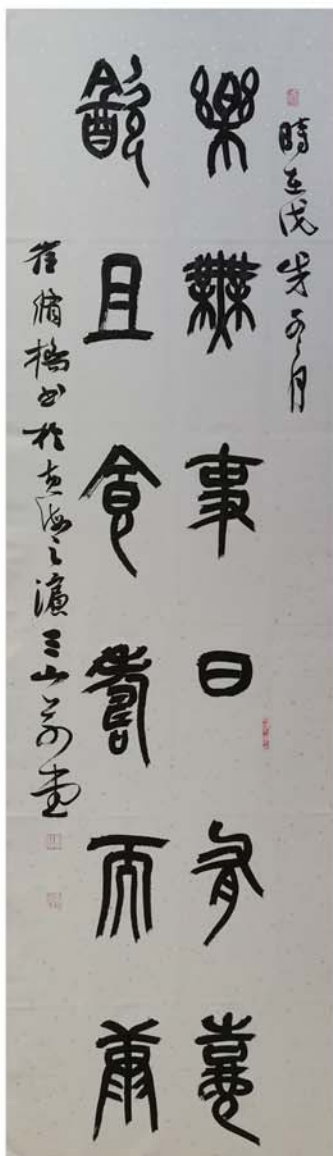 時在戊戌冬月
樂無事日有憙
飲且食壽而康
崔書於黄海之濱三山堂